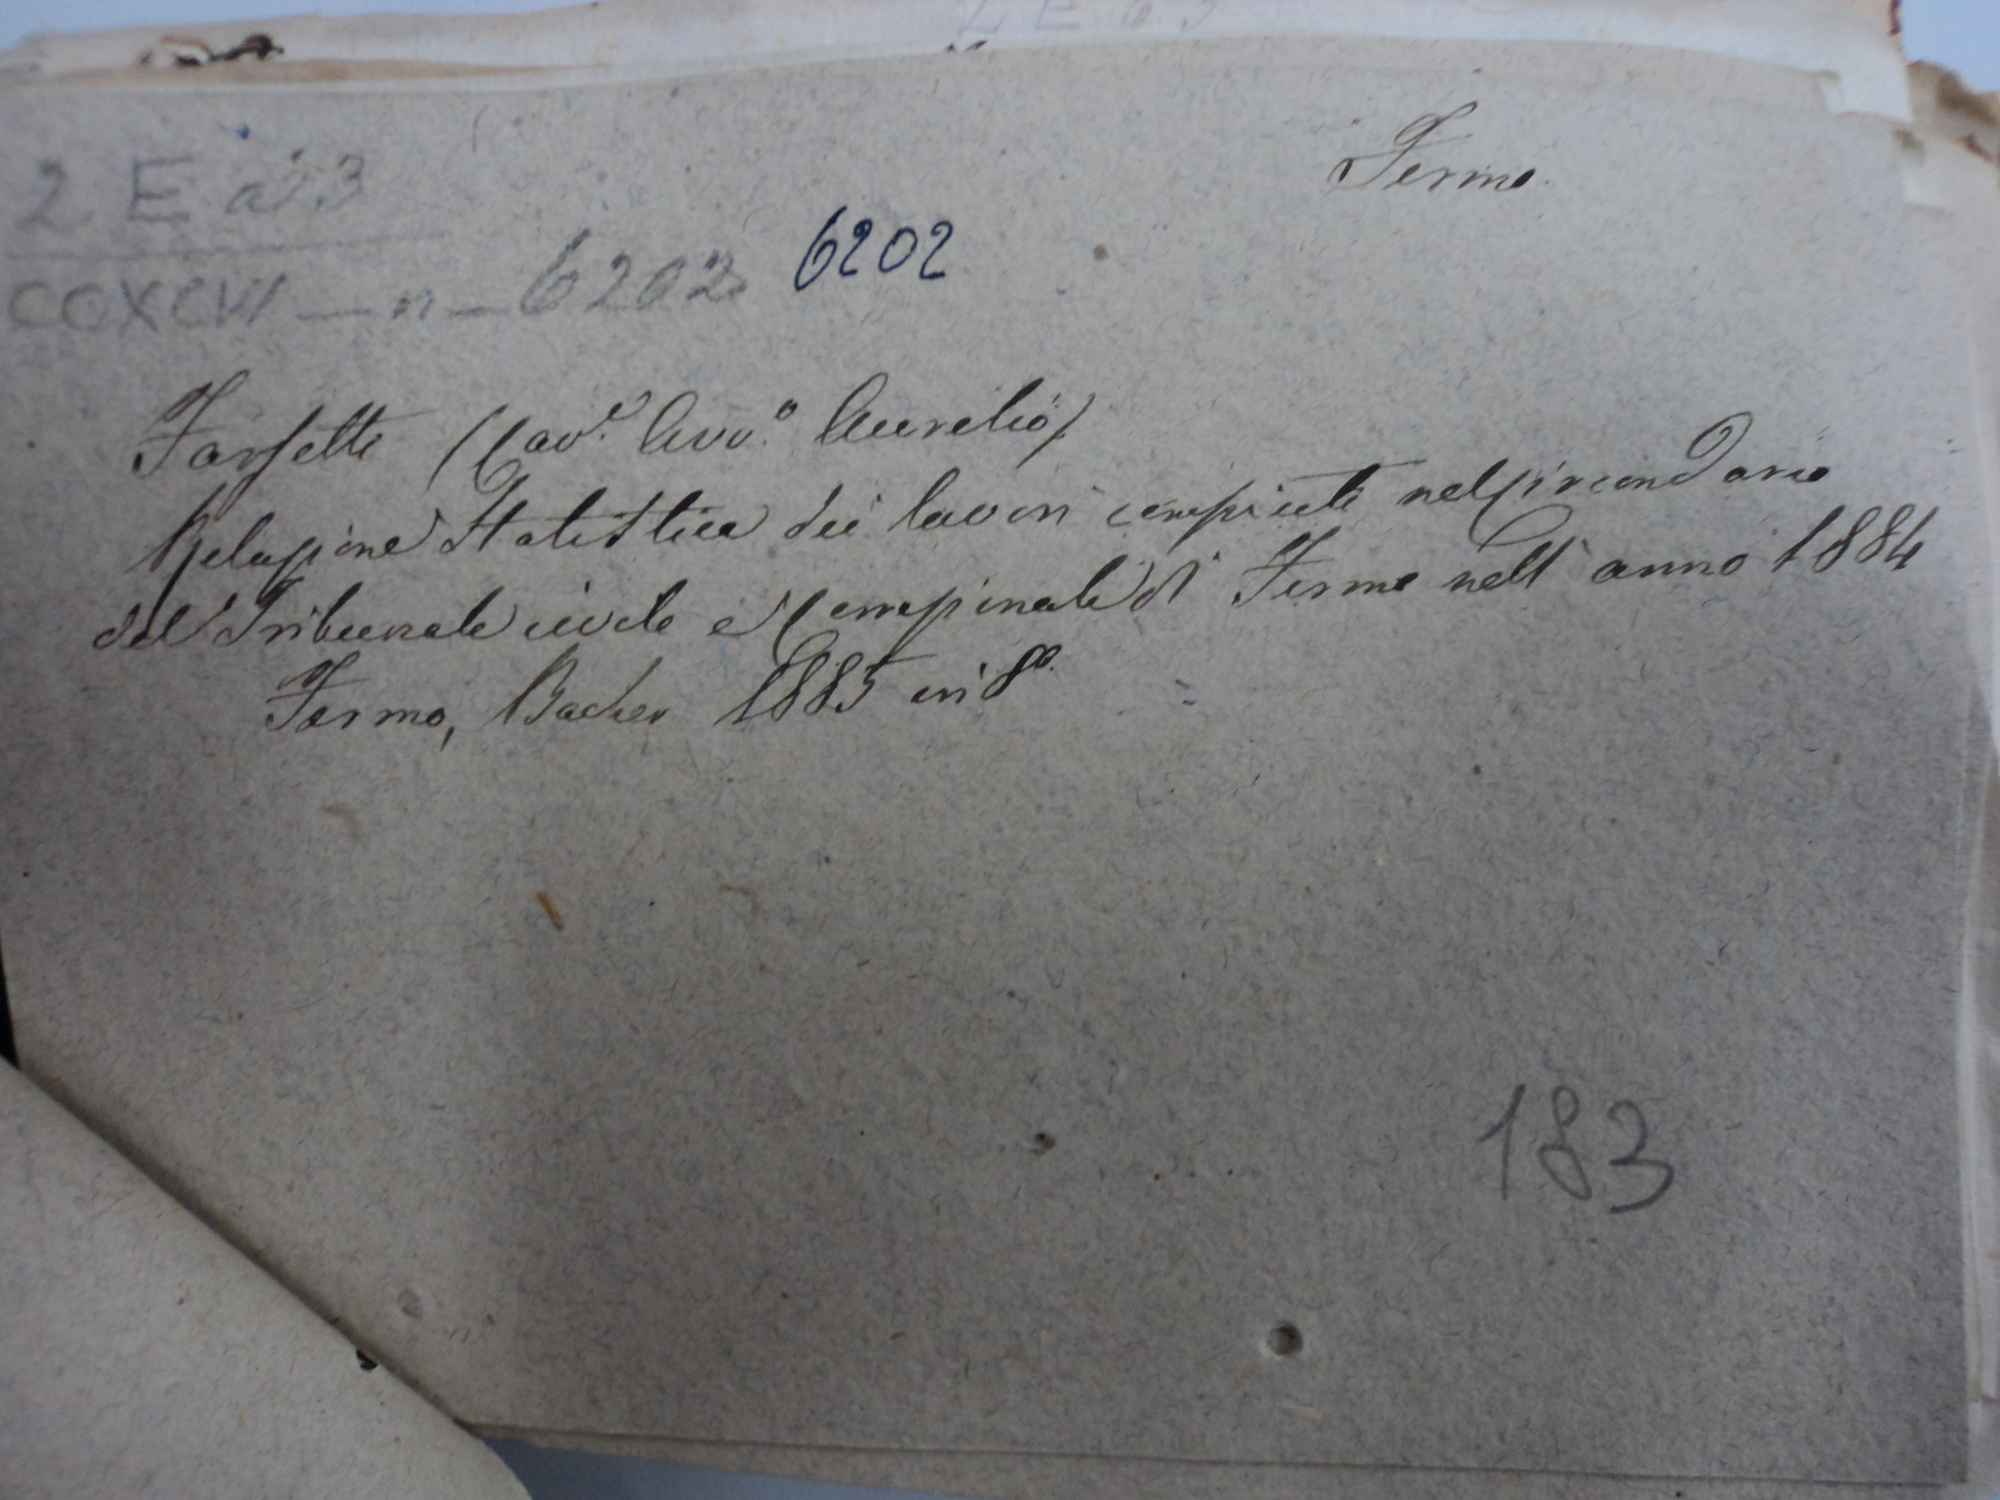 Fermo
2 E a) 3
CCXCVI — n — 6202 6202
Farfetti (Cav.e Avv.o Aurelio)
Relazione Statistica dei lavori compiuti nel Circondario
del Tribunale civile e Correzionale di Fermo nell'anno 1884
Fermo, Bacher 1885 in 8º.
183